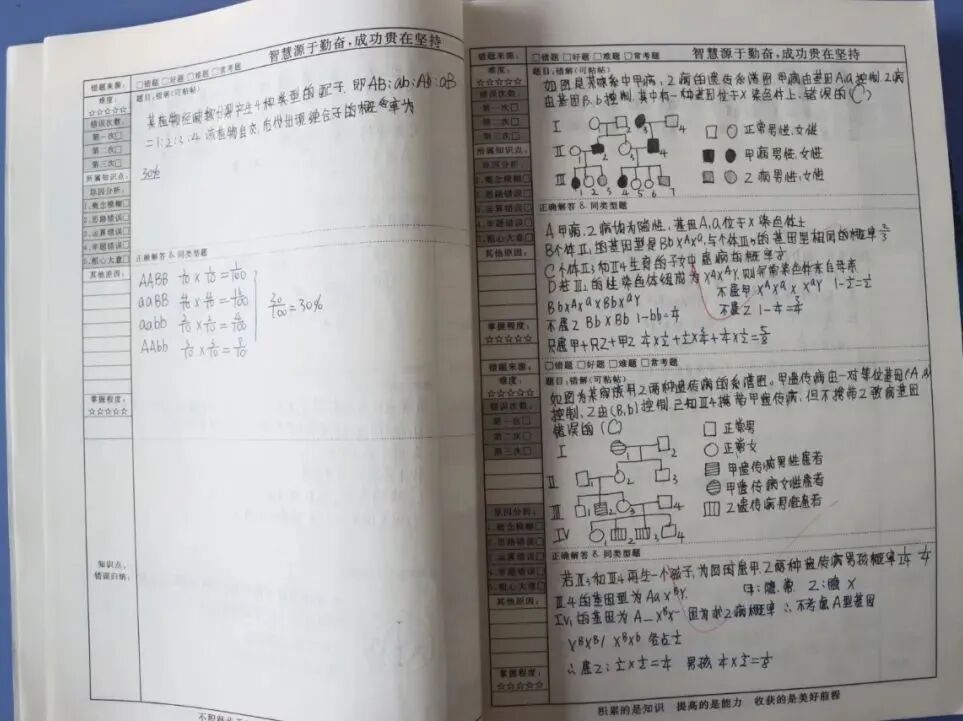 智慧源于勤奋，成功贵在坚持
错题来源： □错题 □好题 □难题 □常考题
难度： 题目：错解（可粘帖）
☆☆☆☆☆
错误次数：
第一次□
第二次□
第三次□
所属知识点：
原因分析：
1.概念模糊□
2.思路错误□
3.运算错误□
4.审题错误□
5.粗心大意□
其他原因：
某植物经减数分裂产生4种类型的配子，即AB:ab:Ab:aB
=1:2:3:4 该植物自交，后代出现纯合子的概率为
30%
正确解答 & 同类型题
AABB 1/10 × 1/10 = 1/100
aaBB 4/10 × 4/10 = 16/100
aabb 2/10 × 2/10 = 4/100
AAbb 3/10 × 3/10 = 9/10
30/100 = 30%
掌握程度：
☆☆☆☆☆
知识点、
错误归纳：
智慧源于勤奋，成功贵在坚持
错题来源： □错题 □好题 □难题 □常考题
难度： 题目：错解（可粘帖）
☆☆☆☆☆
错误次数：
第一次□
第二次□
第三次□
所属知识点：
原因分析：
1.概念模糊□
2.思路错误□
3.运算错误□
4.审题错误□
5.粗心大意□
其他原因：
如图是某家系中甲病，乙病的遗传系谱图 甲病由基因A,a控制，乙病
由基因B,b控制，其中有一种基因位于X染色体上 错误的(C)
I 1 2 3 4
□ ○ 正常男性,女性
II 1 2 3 4
■ ● 甲病男性,女性
III 1 2 3 4 5 6 7
乙病男性,女性
正确解答 & 同类型题
A 甲病,乙病均为隐性，基因A,a位于X染色体上
的基因型是BbXAXa,与个体III5的基因型相同的概率2/3
和II4生育的子女中患病的概率
的性染色体组成为XaXaY,则异常染色体来自母本
BbXAXa×BbXaY 不患甲 XAXa × XaY 1-1/2=1/2
不患乙 Bb×Bb 1-bb=1/4 不患乙 1-1/4=3/4
只患甲+只乙+甲乙 1/4×1/2+1/2×3/4+1/4×1/2=5/8
掌握程度：
☆☆☆☆☆
错题来源： □错题 □好题 □难题 □常考题
难度： 题目：错解（可粘帖）
☆☆☆☆☆
错误次数：
第一次□
第二次□
第三次□
原因分析：
1.概念模糊□
2.思路错误□
3.运算错误□
4.审题错误□
5.粗心大意□
其他原因：
如图为某家族甲乙两种遗传病的系谱图。甲遗传病由一对等位基因(A,a)
控制，乙由(B,b)控制，已知III4携带甲遗传病，但不携带乙致病基因
错误的(C)
I 1 2
□ 正常男
○ 正常女
II 1 2 3
甲遗传病男性患者
甲遗传病女性患者
III 1 2 3 4
乙遗传病男性患者
IV 1 2 3 4
正确解答 & 同类型题
若III3和III4再生一个孩子，为同时患甲,乙两种遗传病男孩概率1/24 1/4
III.4的基因型为AaXBY. 甲：隐,常 乙：隐 X
IV1的基因为A_XBX- 因为求乙病概率 ∴不考虑A型基因
XBXB/ XBXb 各占1/2
∴患乙：1/2×1/2=1/4 男孩 1/4×1/2=1/8
掌握程度：
☆☆☆☆☆
积累的是知识 提高的是能力 收获的是美好前程